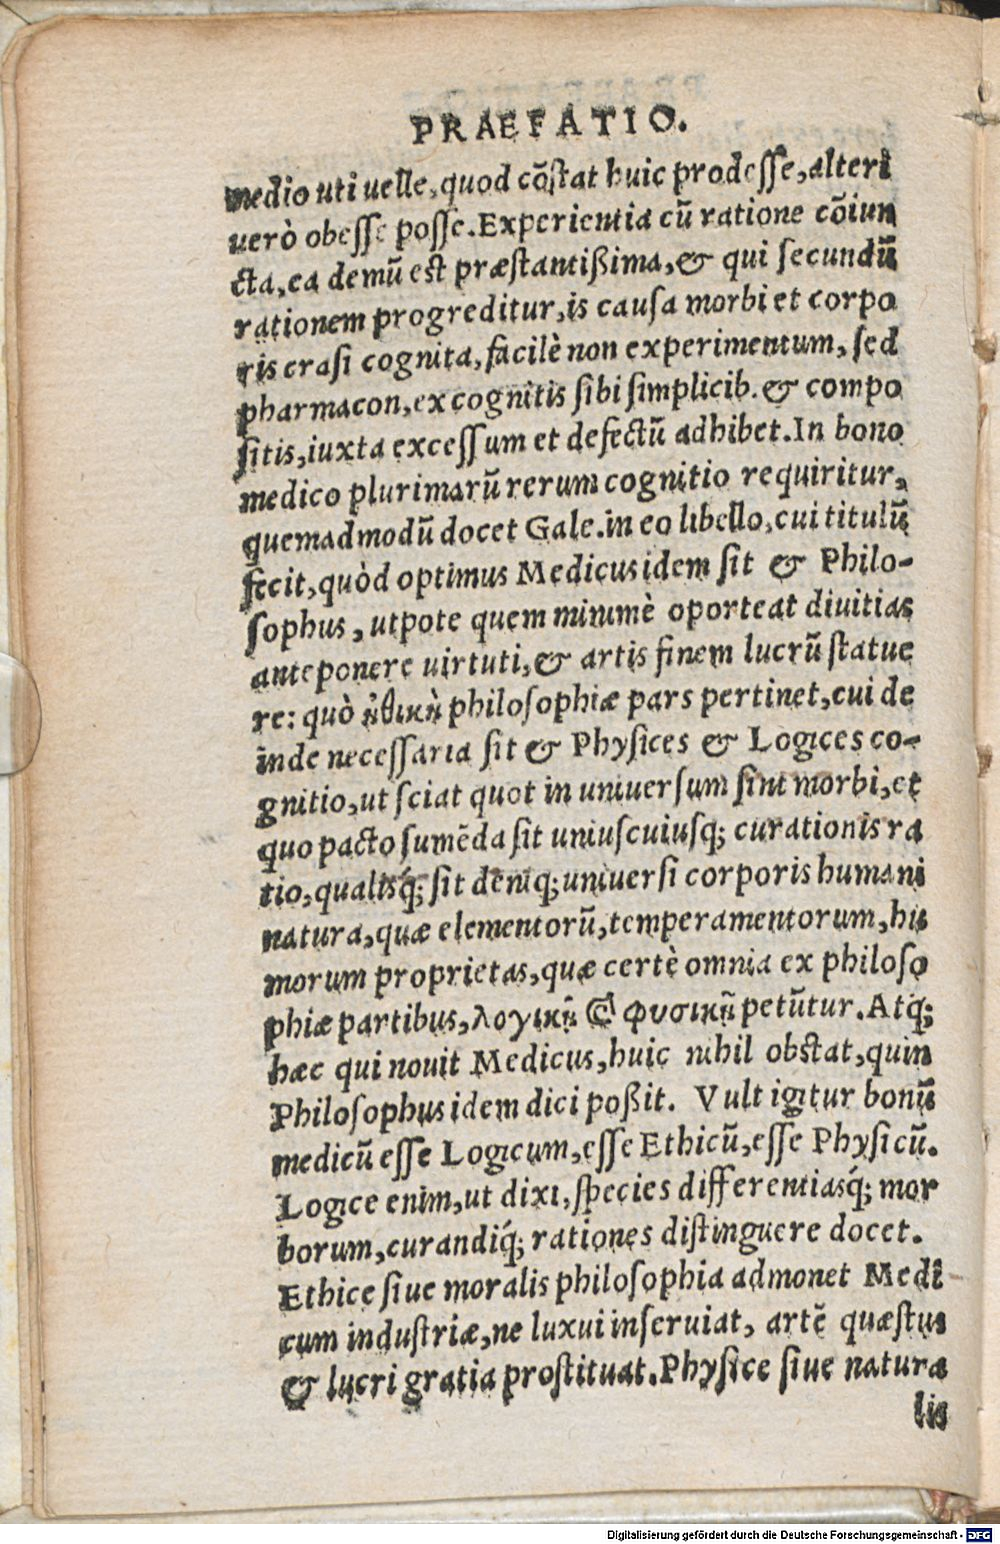 PRAEFATIO.
medio uti uelle, quod cõſtat huic prodeſſe, alteri
uerò obeſſe poſſe. Experientia cũ ratione cõiun
cta, ea demũ est præſtantißima, & qui ſecundũ
rationem progreditur, is cauſa morbi et corpo
ris craſi cognita, facilè non experimentum, ſed
pharmacon, ex cognitis ſibi ſimplicib. & compo
ſitis, iuxta exceſſum et defectũ adhibet. In bono
medico plurimarũ rerum cognitio requiritur,
quemadmodũ docet Gale. in eo libello, cui titulũ
fecit, quòd optimus Medicus idem ſit & Philo-
ſophus, utpote quem minimè oporteat diuitias
anteponere uirtuti, & artis finem lucrũ ſtatue
re: quò ἠθικὴ philoſophiæ pars pertinet, cui de
inde neceſſaria ſit & Phyſices & Logices co-
gnitio, ut ſciat quot in uniuerſum ſint morbi, et
quo pacto ſumẽda ſit uniuſcuiuſq; curationis ra
tio, qualisq́; ſit deniq; uniuerſi corporis humani
natura, quæ elementorũ, temperamentorum, hu
morum proprietas, quæ certè omnia ex philoſo
phiæ partibus, λογικῇ & φυσικῇ petũtur. Atq;
hæc qui nouit Medicus, huic nihil obſtat, quin
Philoſophus idem dici poßit. Vult igitur bonũ
medicũ eſſe Logicum, eſſe Ethicũ, eſſe Phyſicũ.
Logice enim, ut dixi, ſpecies differentiasq́; mor
borum, curandiq́; rationes diſtinguere docet.
Ethice ſiue moralis philoſophia admonet Medi
cum induſtriæ, ne luxui inſeruiat, artẽ quæſtus
& lucri gratia proſtituat. Phyſice ſiue natura
lis
Digitalisierung gefördert durch die Deutsche Forschungsgemeinschaft - DFG